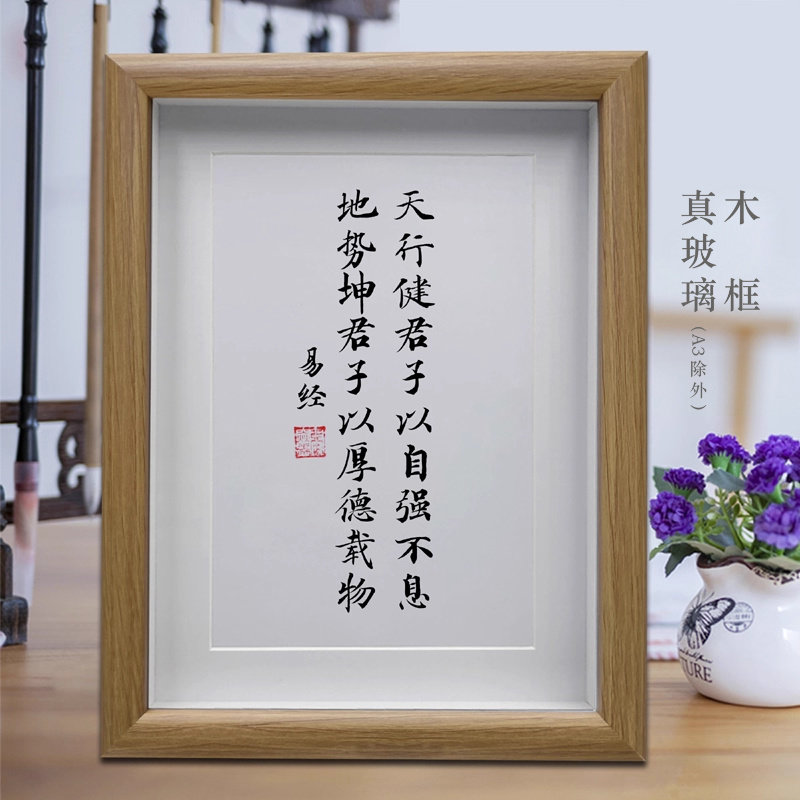 天行健君子以自强不息
地势坤君子以厚德载物
易经
木框
真玻璃(A3除外)
TURE